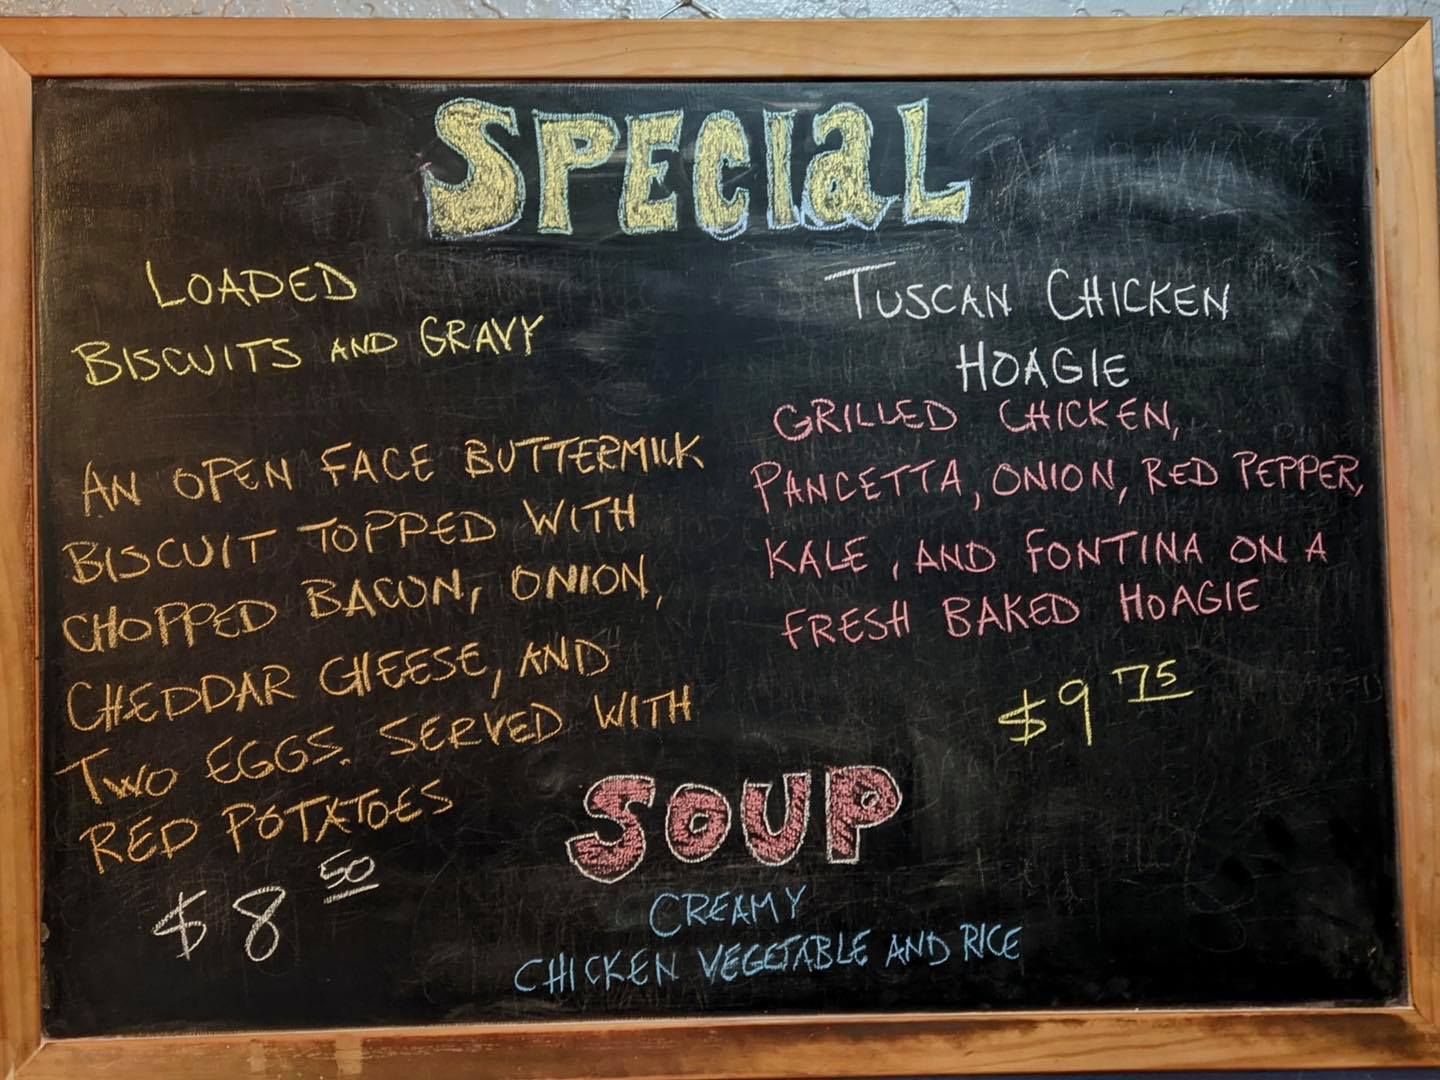 SPECIAL
LOADED
BISCUITS AND GRAVY
AN OPEN FACE BUTTERMILK
BISCUIT TOPPED WITH
CHOPPED BACON, ONION,
CHEDDAR CHEESE, AND
TWO EGGS. SERVED WITH
RED POTATOES
$8 50
TUSCAN CHICKEN
HOAGIE
GRILLED CHICKEN,
PANCETTA, ONION, RED PEPPER,
KALE, AND FONTINA ON A
FRESH BAKED HOAGIE
$9 75
SOUP
CREAMY
CHICKEN VEGETABLE AND RICE